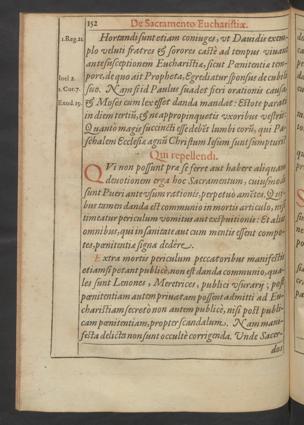 152 De Sacramento Eucharistiæ.
1.Reg.21. Hortandi sunt etiam coniuges, vt Dauidis exem-
plo veluti fratres & sorores castè ad tempus viuant
ante susceptionem Eucharistiæ, sicut Penitentiæ tem-
Ioel 2. pore, de quo ait Propheta, Egrediatur sponsus de cubili
1. Cor.7. suo. Nam si id Paulus suadet fieri orationis causa,
Exod.19. & Moses cum lex esset danda mandat: Estote parati
in diem tertiũ, & ne appropinquetis vxoribus vestris:
Quanto magis succincti esse debẽt lumbi eorũ, qui Pa-
schalem Ecclesiæ agnũ Christum Iesum sunt sumpturi?
Qui repellendi.
QVi non possunt præ se ferre aut habere aliquam
deuotionem erga hoc Sacramentum, cuiusmodi
sunt Pueri ante vsum rationis, perpetuò amẽtes. Qui-
bus tamen danda est communio in mortis articulo, nisi
timeatur periculum vomitus aut exspuitionis: Et aliis
omnibus, qui in sanitate aut cum mentis essent compo-
tes, pœnitentiæ signa dedêre.
Extra mortis periculum peccatoribus manifestis
etiamsi petant publicè, non est danda communio, qua-
les sunt Lenones, Meretrices, publici vsurarij; post
pœnitentiam autem priuatam possent admitti ad Eu-
charistiam secretò non autem publicè, nisi post publi-
cam pœnitentiam, propter scandalum. Nam mani-
festa delicta non sunt occultè corrigenda. Vnde Sacer-
dos